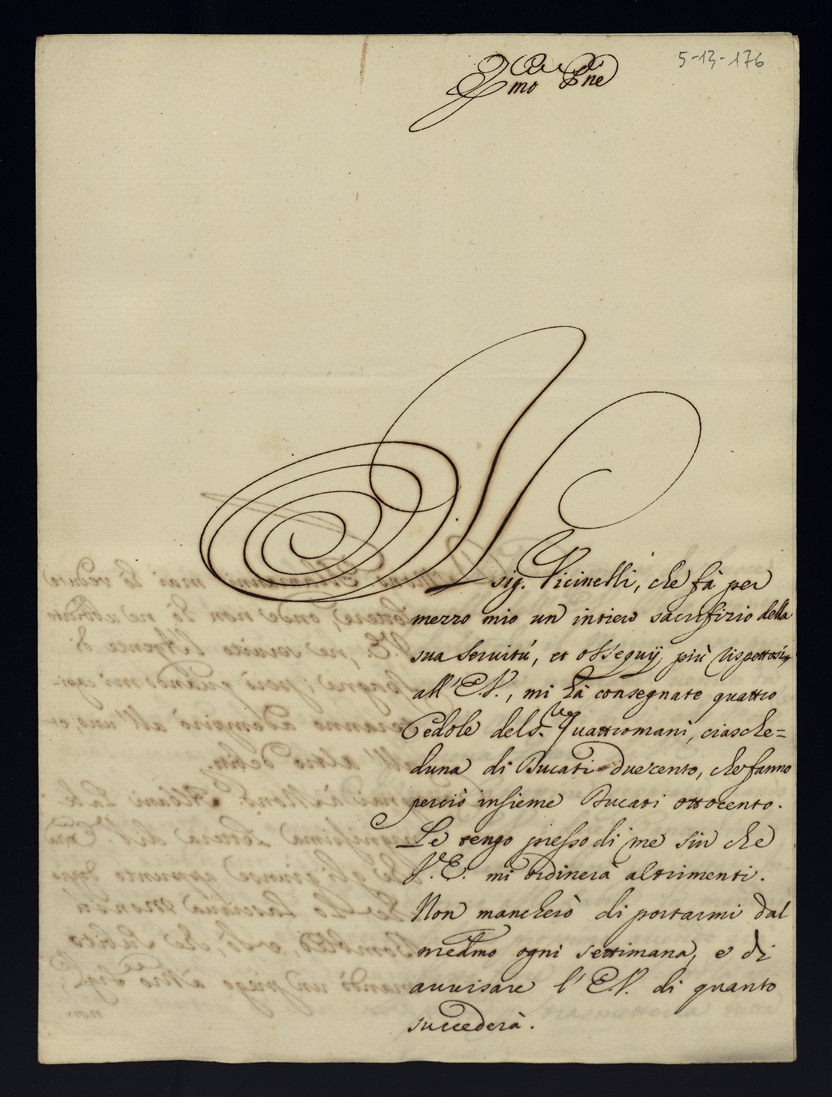 5-13-176
Emo Pne
Il sig. Vicinelli, che fà per
mezzo mio un intiero sacrifizio della
sua servitù, et ossequij più rispettosi
all' E.V., mi hà consegnate quattro
Cedole del sr. Quattromani, ciasche=
duna di Ducati duecento, che fanno
perciò insieme Ducati ottocento.
Le tengo presso di me sin che
V.E. mi ordinerà altrimenti.
Non mancherò di portarmi dal
medmo ogni settimana, e di
avvisare l' E.V. di quanto
succederà.